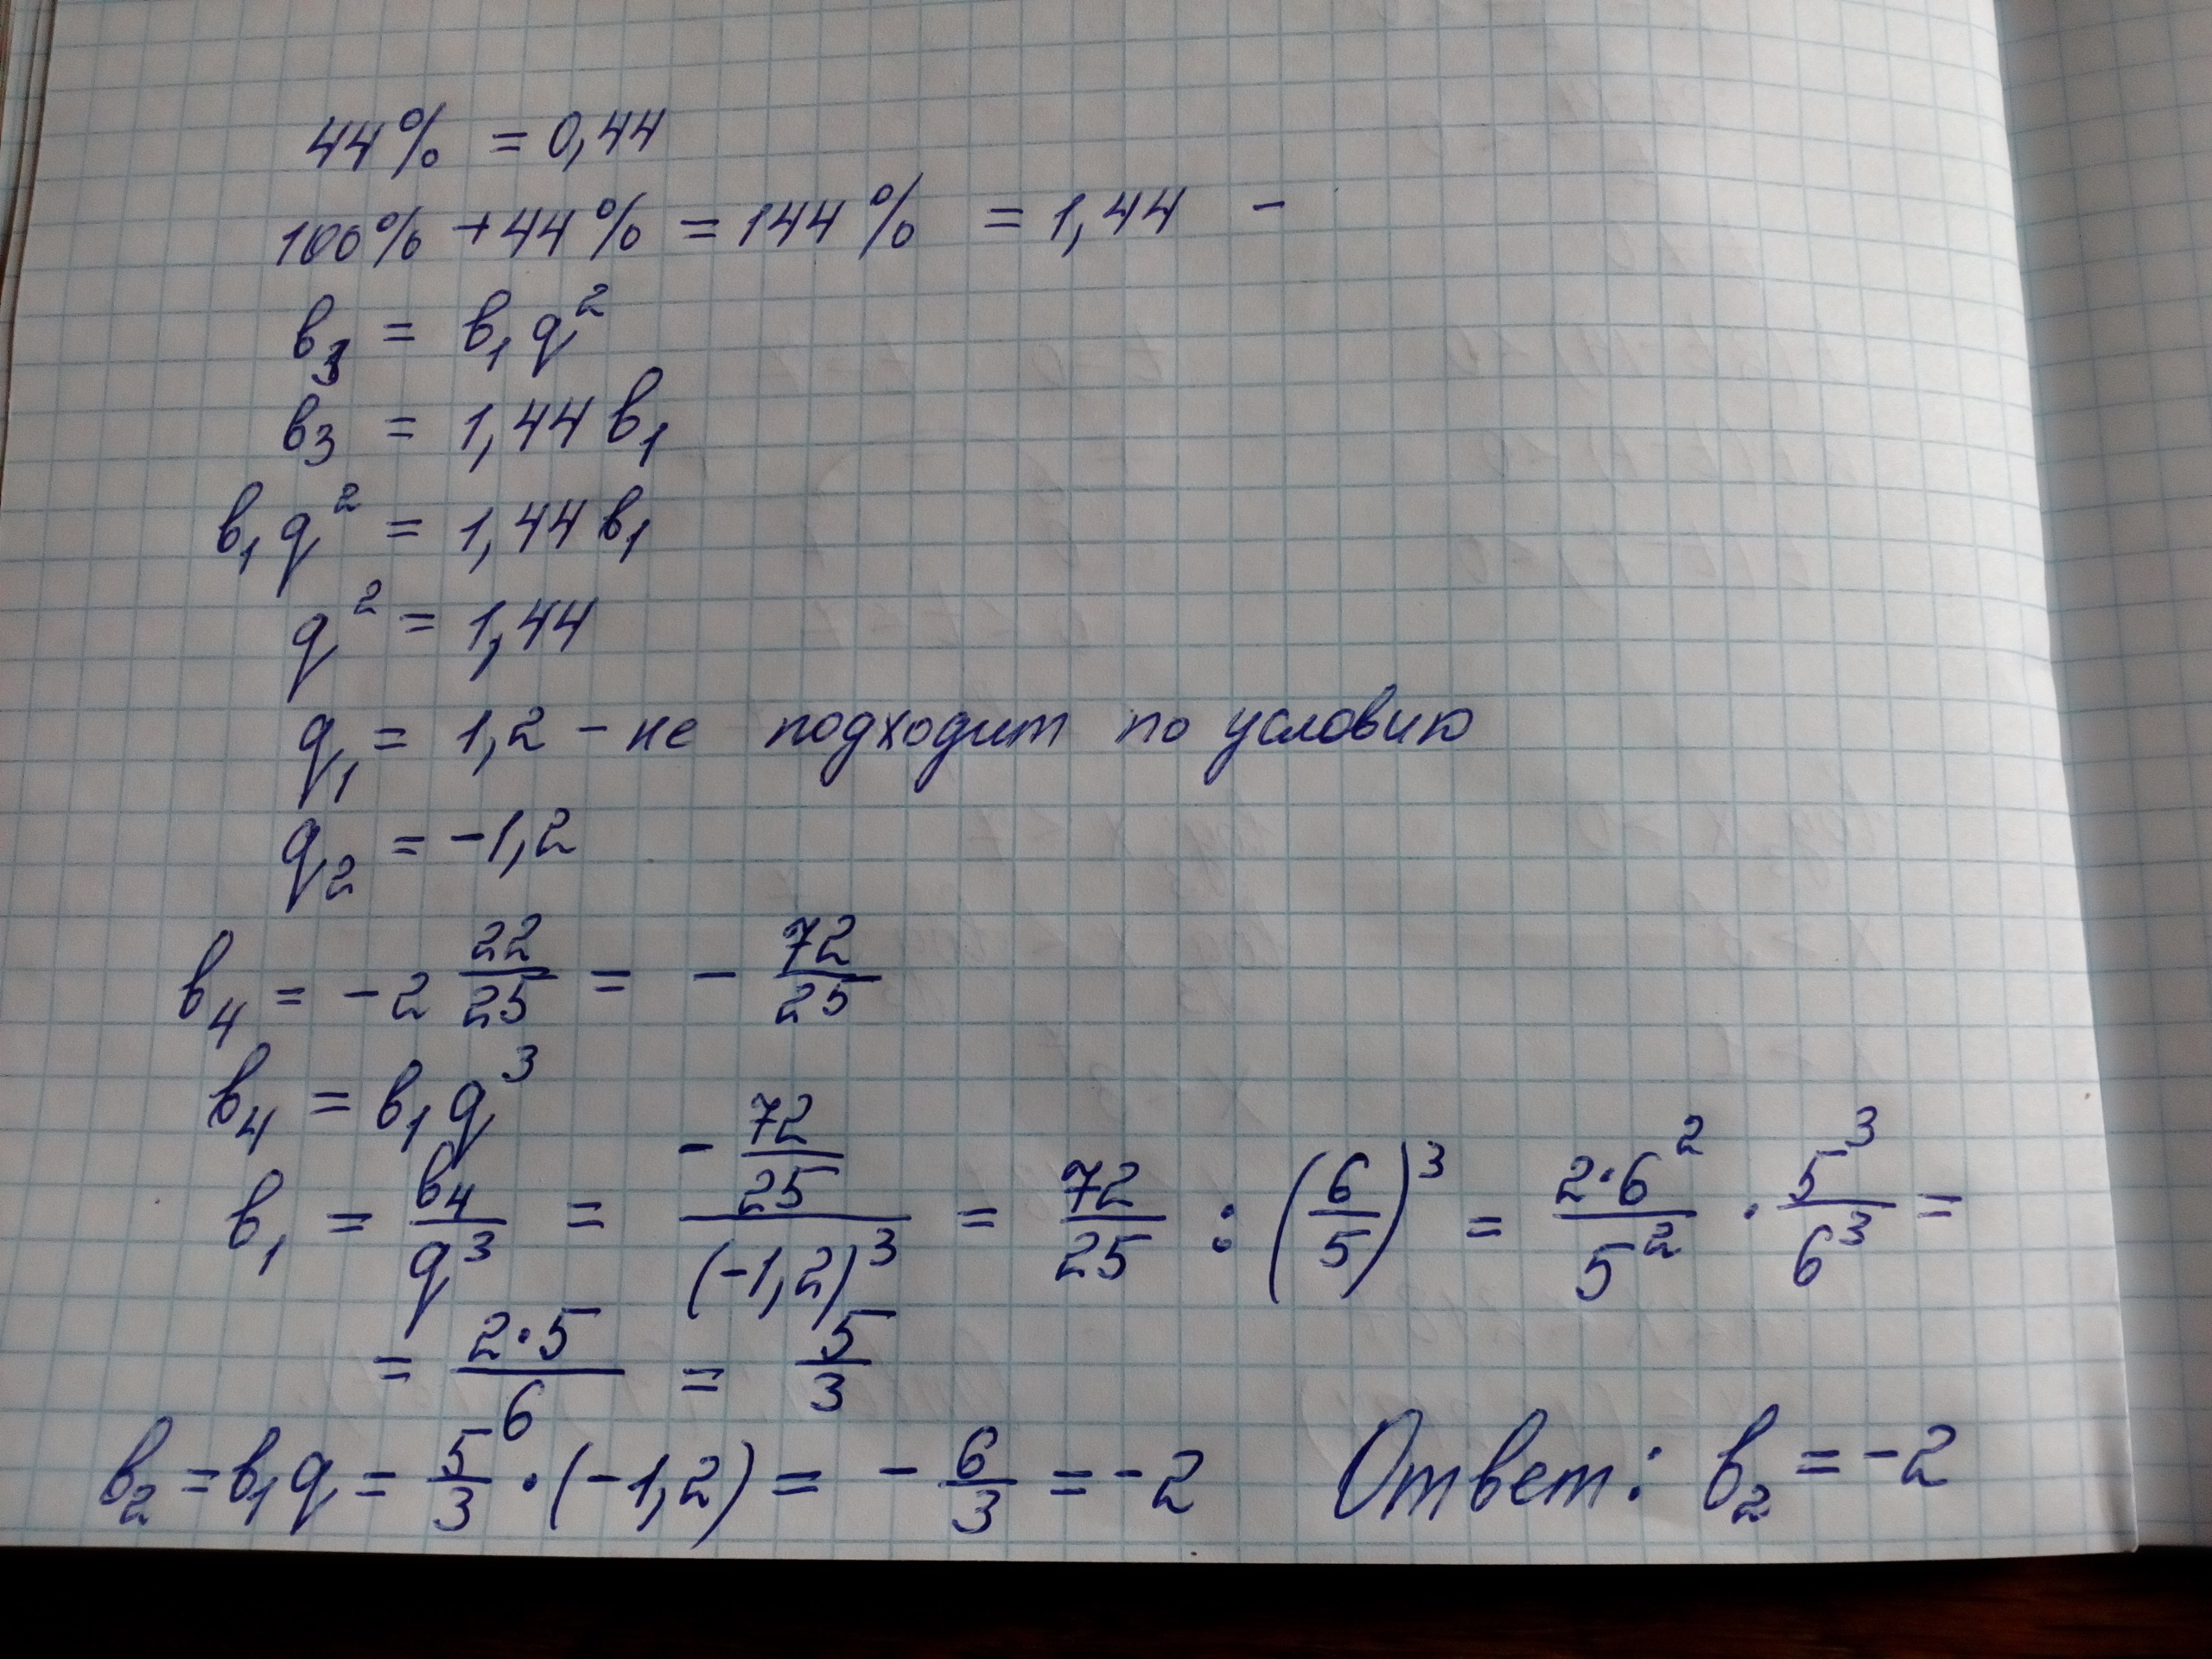 44% = 0,44
100% + 44% = 144% = 1,44 -
в₃ = в₁q²
в₃ = 1,44 в₁
в₁q² = 1,44 в₁
q² = 1,44
q₁ = 1,2 - не подходит по условию
q₂ = -1,2
в₄ = -2 22/25 = - 72/25
в₄ = в₁q³
в₁ = в₄/q³ = (- 72/25)/(-1,2)³ = 72/25 : (6/5)³ = 2·6²/5² · 5³/6³ =
= 2·5/6 = 5/3
в₂ = в₁q = 5/3 · (-1,2) = - 6/3 = -2 Ответ: в₂ = -2